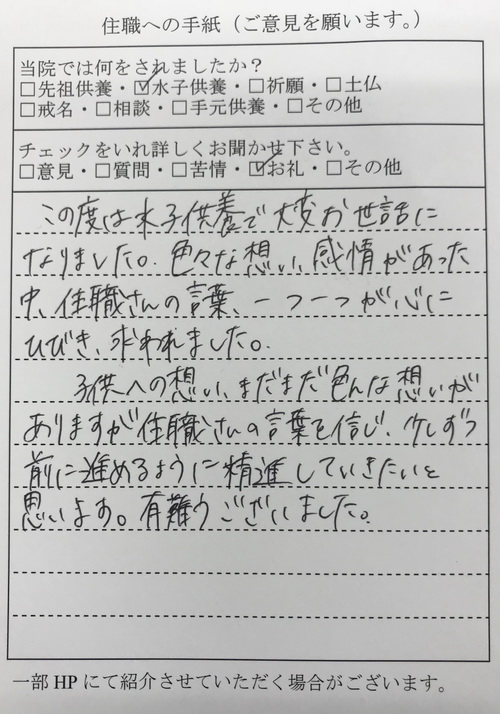 住職への手紙（ご意見を願います。）
当院では何をされましたか？
□先祖供養・☑水子供養・□祈願・□土仏
□戒名・□相談・□手元供養・□その他
チェックをいれ詳しくお聞かせ下さい。
□意見・□質問・□苦情・☑お礼・□その他
この度は水子供養で大変お世話に
なりました。色々な想い、感情があった
中、住職さんの言葉、一つ一つが心に
ひびき、求われました。
子供への想い、まだまだ色んな想いが
ありますが住職さんの言葉を信じ、少しずつ
前に進めるように精進していきたいと
思います。有難うございました。
一部HPにて紹介させていただく場合がございます。